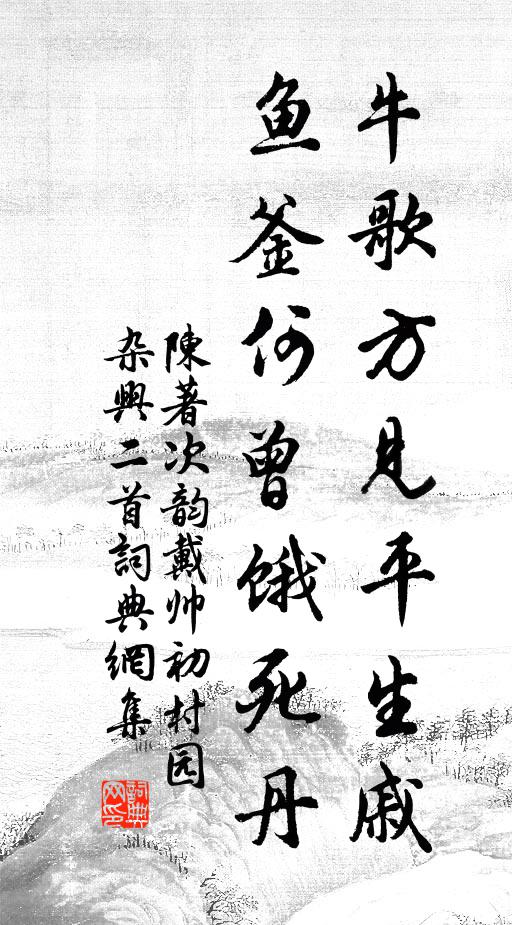 牛歌方见平生戚
鱼釜何曾饿死丹
陳著次韵戴帅初村园
杂興二首詞典網集
詞典网印